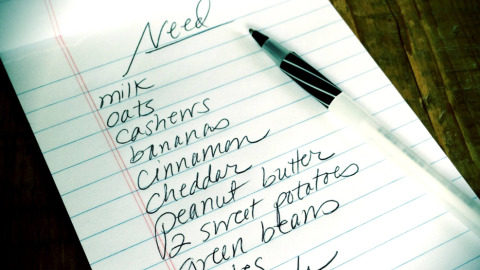 Need
milk
oats
cashews
bananas
cinnamon
cheddar
peanut butter
2 sweet potatoes
green beans